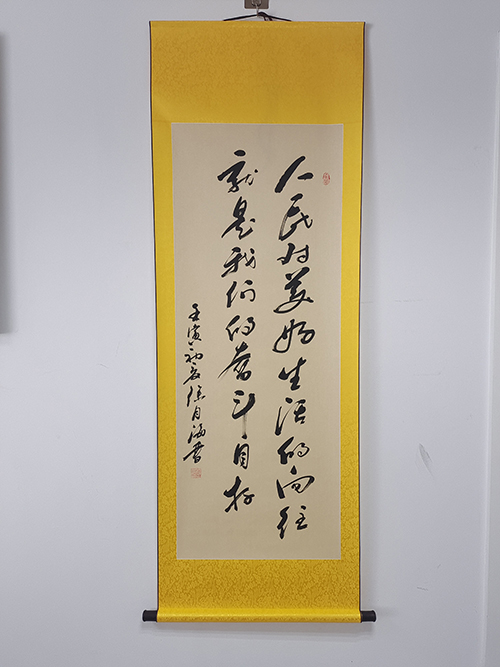 人民对美好生活的向往
就是我们的奋斗目标
壬寅初夏徐月海书